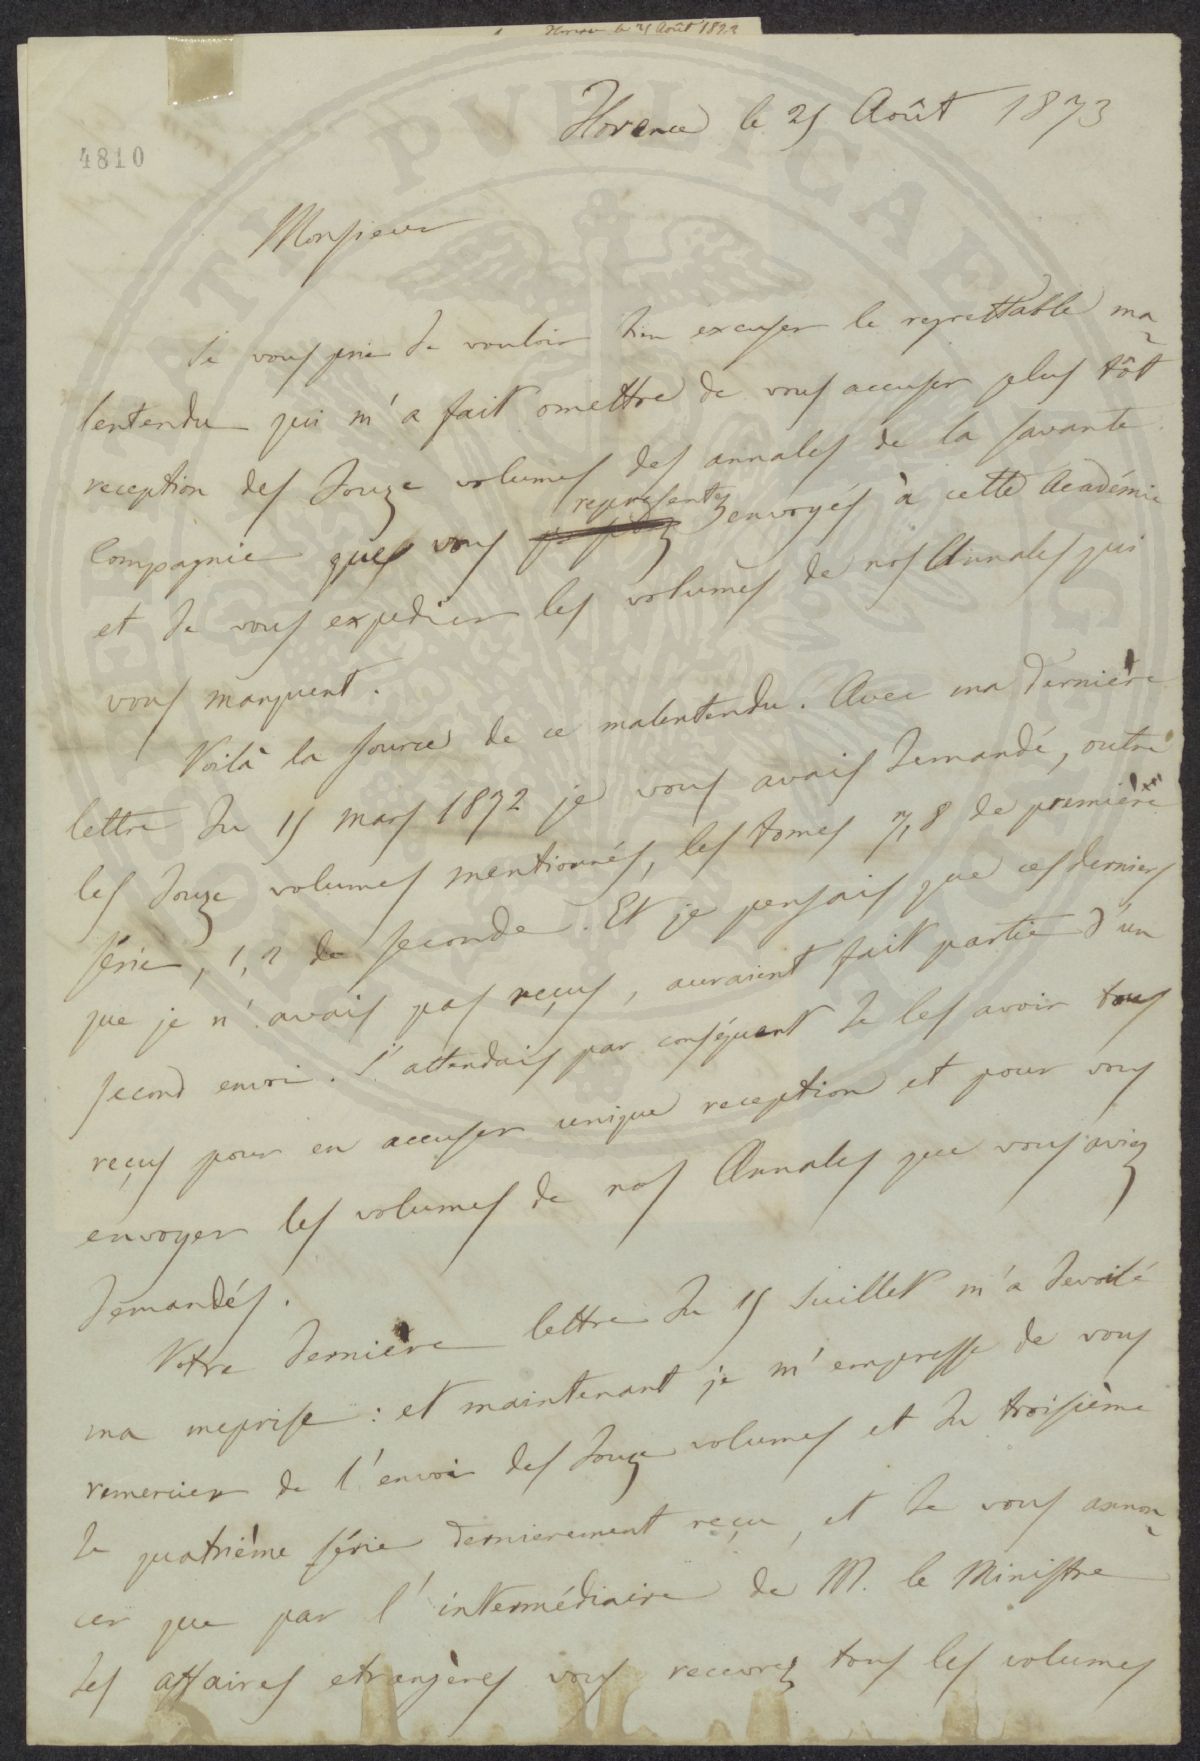 Florence le 25 Août 1873
Florence le 25 Août 1873
4810
Monsieur
Je vous prie de vouloir bien excuser le regrettable ma-
lentendu qui m'a fait omettre de vous accuser plus tôt
reception des douze volumes des annales de la savante
Compagnie que vous representez envoyés à cette Académie
et de vous expedier les volumes de nos Annales qui
vous manquent.
Voilà la source de ce malentendu. Avec ma dernière
lettre du 15 mars 1872 je vous avais demandé, outre
les douze volumes mentionnés, les tomes 7, 8 de première
série, 1, 2 de seconde. Et je pensais que ces derniers
que je n'avais pas reçus, auraient fait partie d'un
second envoi. J'attendais par conséquent de les avoir tous
reçus pour en accuser unique reception et pour vous
envoyer les volumes de nos Annales que vous aviez
demandés.
Votre dernière lettre du 15 Juillet m'a devoilé
ma meprise : et maintenant je m'empresse de vous
remercier de l'envoi des douze volumes et du troisième
de quatrième série dernierement reçu, et de vous annon-
cer que par l'intermédiaire de M. le Ministre
des affaires etrangères vous recevrez tous les volumes